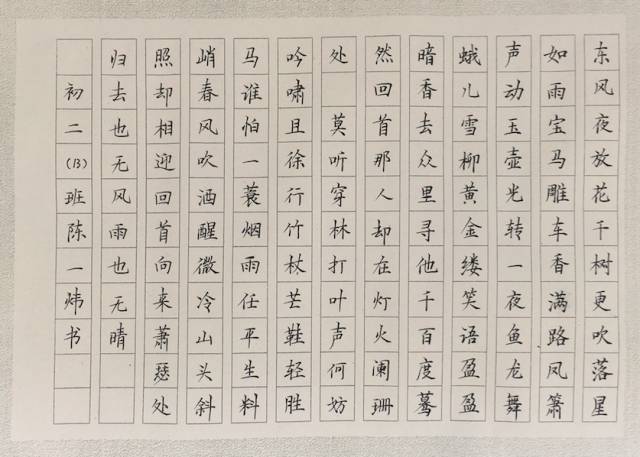 东风夜放花千树更吹落星
如雨宝马雕车香满路凤箫
声动玉壶光转一夜鱼龙舞
蛾儿雪柳黄金缕笑语盈盈
暗香去众里寻他千百度蓦
然回首那人却在灯火阑珊
处 莫听穿林打叶声何妨
吟啸且徐行竹杖芒鞋轻胜
马谁怕一蓑烟雨任平生料
峭春风吹酒醒微冷山头斜
照却相迎回首向来萧瑟处
归去也无风雨也无晴
初二(13)班陈一炜书